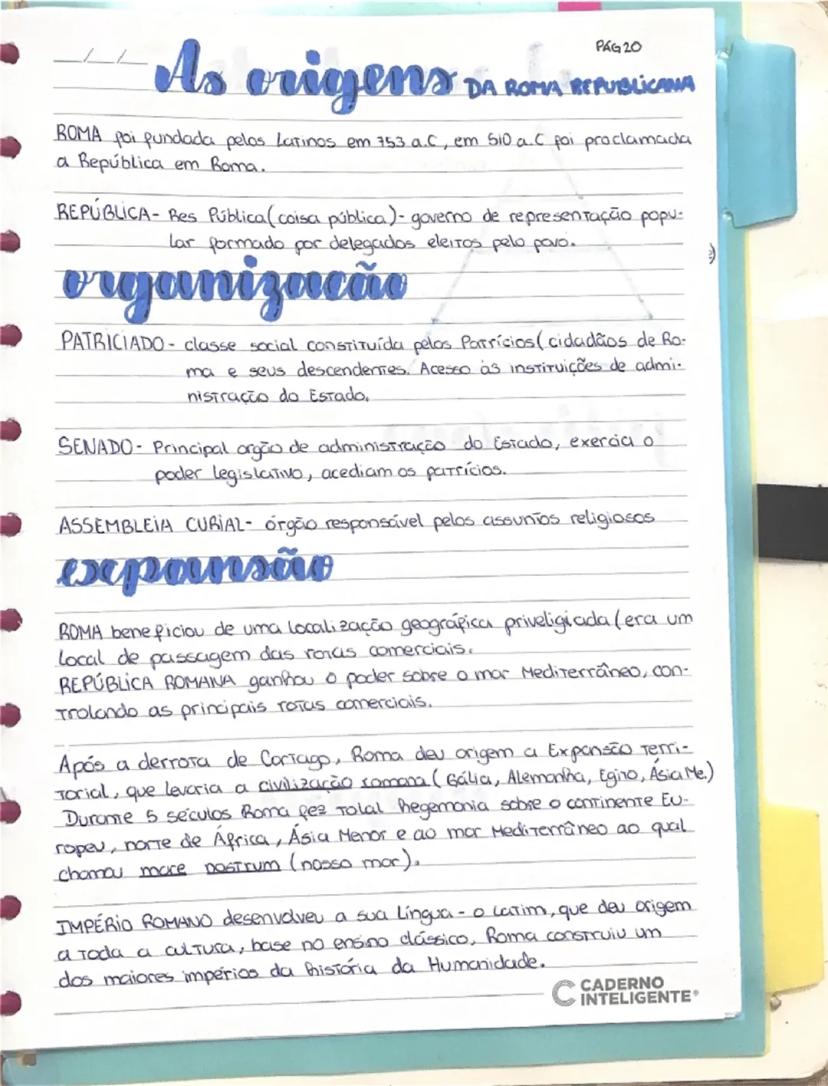 PÁG 20
As origens DA ROMA REPUBLICANA
ROMA foi fundada pelos Latinos em 753 a.C, em 510 a.C foi proclamada
a República em Roma.
REPÚBLICA- Res Pública (coisa pública)- governo de representação popu-
lar formado por delegados eleitos pelo povo.
organização
PATRICIADO- classe social constituída pelos Patrícios (cidadãos de Ro-
ma e seus descendentes. Acesso às instituições de admi-
nistração do Estado.
SENADO- Principal orgão de administração do Estado, exercia o
poder legislativo, acediam os patrícios.
ASSEMBLEIA CURIAL- órgão responsável pelos assuntos religiosos
expansão
ROMA beneficiou de uma localização geográfica priveligiada (era um
local de passagem das rotas comerciais.
REPÚBLICA ROMANA ganhou o poder sobre o mar Mediterrâneo, con-
trolando as principais rotas comerciais.
Após a derrota de Cartago, Roma deu origem a Expansão Terri-
torial, que levaria a civilização romana (Gália, Alemanha, Egito, Ásia Me.)
Durante 5 séculos Roma fez total hegemonia sobre o continente Eu-
ropeu, norte de África, Ásia Menor e ao mar Mediterrâneo ao qual
chamou mare nostrum (nosso mar).
IMPÉRIO ROMANO desenvolveu a sua Língua - o Latim, que deu origem
a toda a cultura, base no ensino clássico, Roma construiu um
dos maiores impérios da história da Humanidade.
CADERNO
INTELIGENTE®